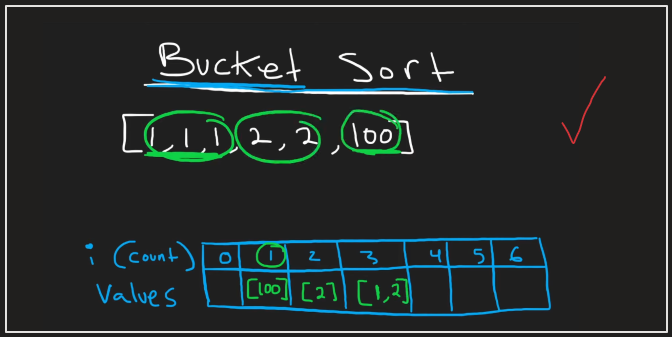 Bucket Sort
[1,1,1,2,2,100]
i (count) 0 1 2 3 4 5 6
Values [100] [2] [1,2]